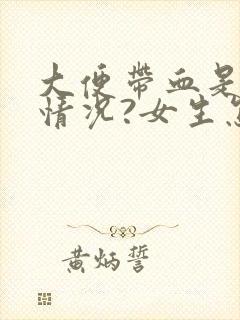 大便带血是
情况?女生
黄炳誓